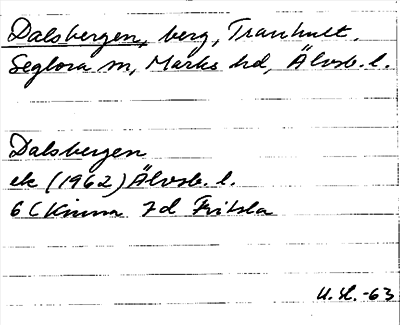 Dalsbergen, berg, Tranhult.
Seglora sn, Marks hd, Älvsb. l.
Dalsbergen
ek (1962) Älvsb. l.
6 C Kinna 7d Fritsla
U. H. -63